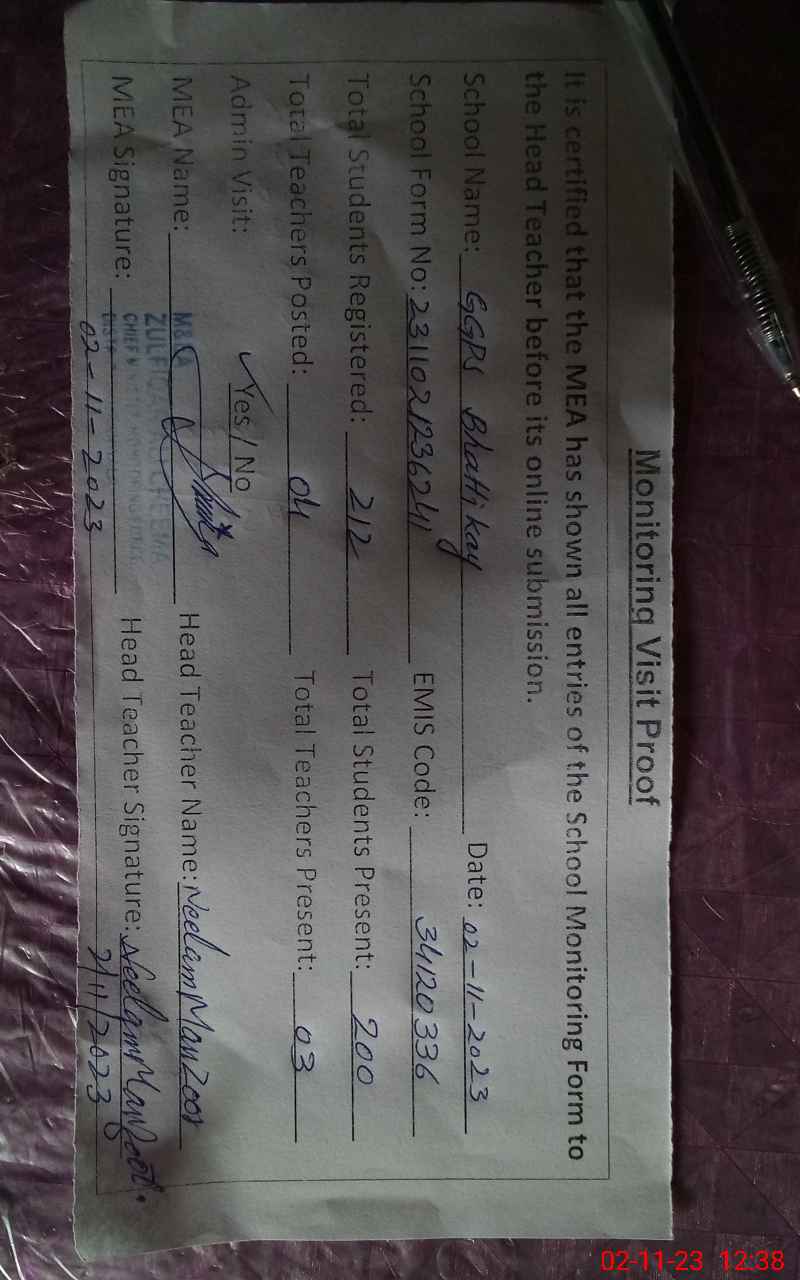 Monitoring Visit Proof
It is certified that the MEA has shown all entries of the School Monitoring Form to
the Head Teacher before its online submission.
School Name: GGPS Bhatti kay Date: 02-11-2023
School Form No: 2311021236241 EMIS Code: 34120336
Total Students Registered: 212 Total Students Present: 200
Total Teachers Posted: 04 Total Teachers Present: 03
Admin Visit: ✓Yes / No
MEA Name: Head Teacher Name: Neelam Manzoor
M&EA
ZULFIQAR CHEEMA
MEA Signature: Head Teacher Signature: Neelam Manzoor
CHIEF MONITORING
02-11-2023 2/11/2023
02-11-23 12:38